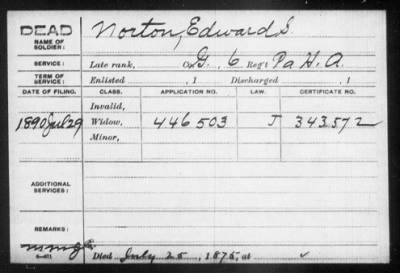 DEAD Norton, Edward S.
NAME OF SOLDIER:
SERVICE: Late rank, Co. G, 6 Reg't Pa H. A.
TERM OF SERVICE: Enlisted , 1 Discharged , 1
DATE OF FILING. CLASS. APPLICATION NO. LAW. CERTIFICATE NO.
Invalid,
1890 Jul 29 Widow, 446503 J 343572
Minor,
ADDITIONAL SERVICES:
REMARKS:
Died July 25, 1875, at